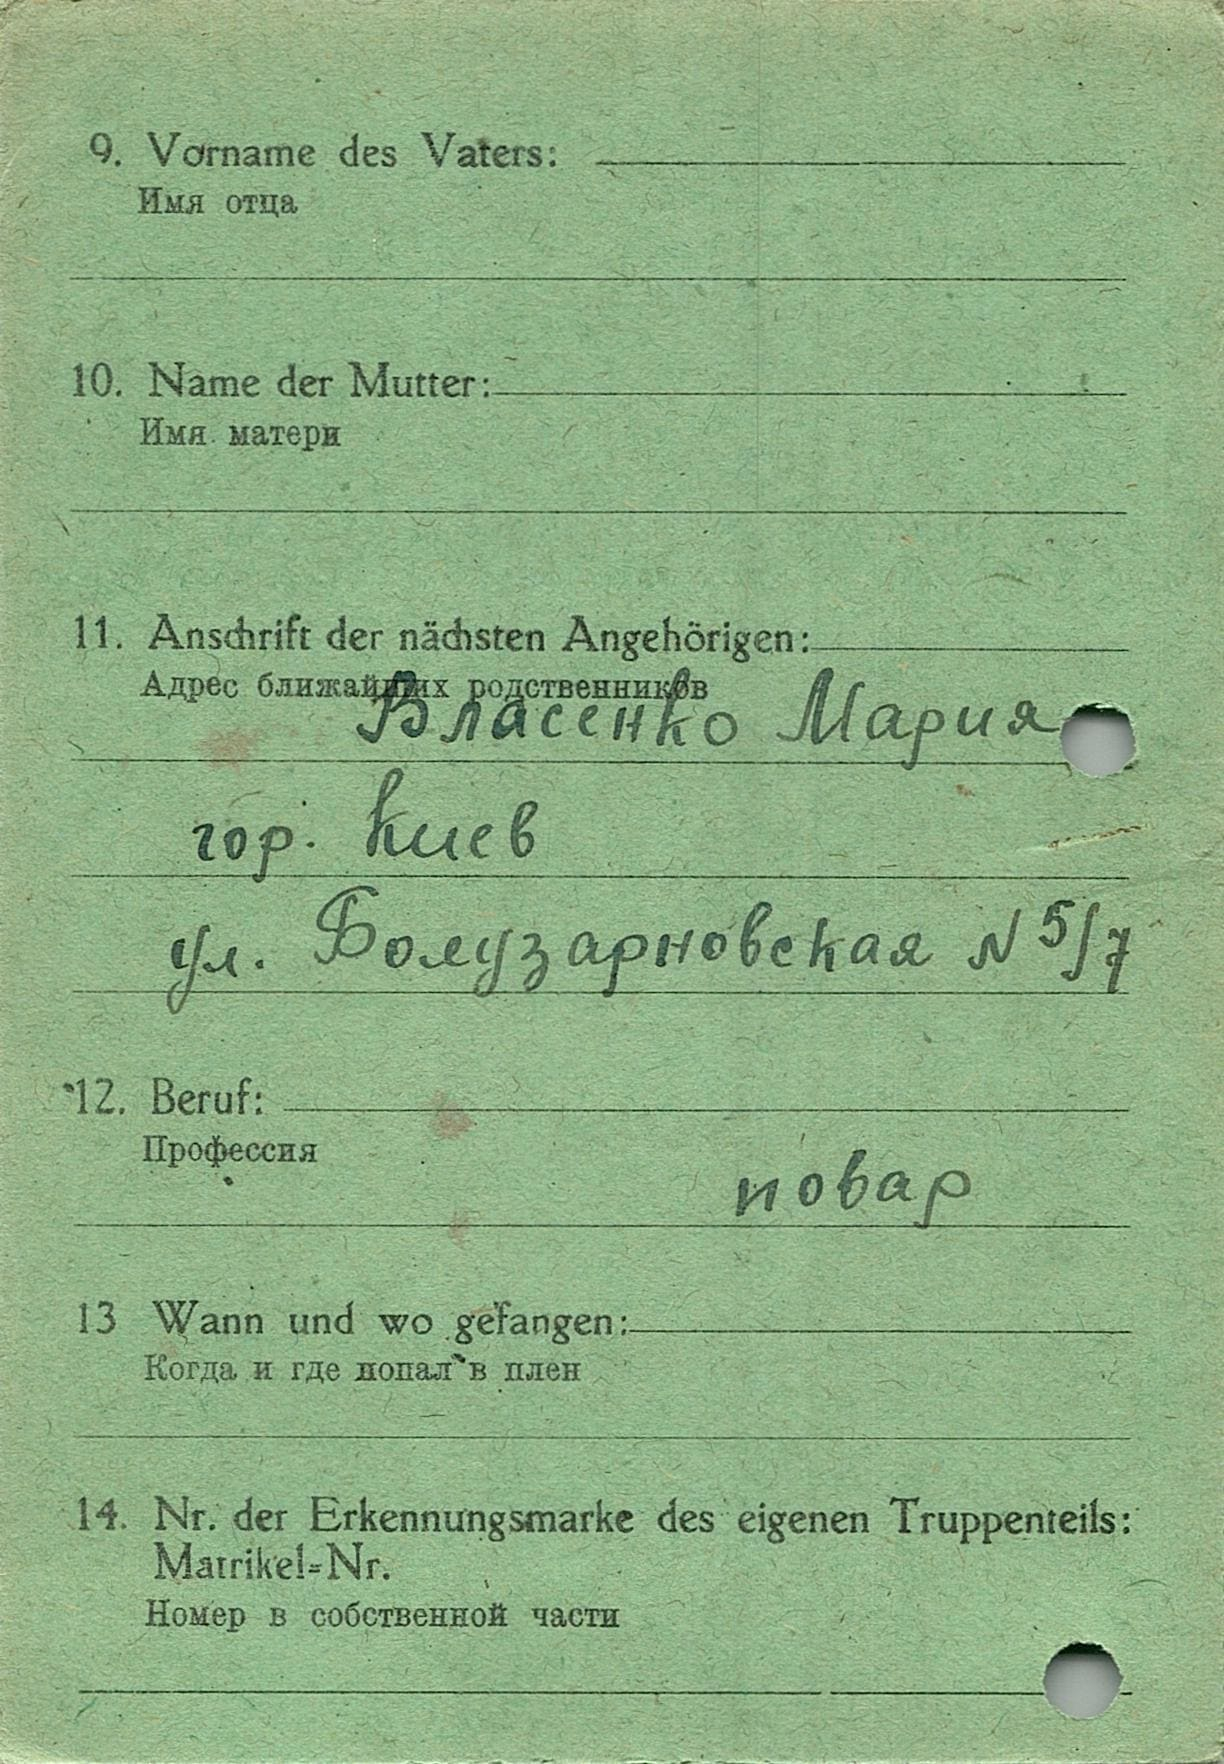 9. Vorname des Vaters:
Имя отца
10. Name der Mutter:
Имя матери
11. Anschrift der nächsten Angehörigen:
Адрес ближайших родственников
Власенко Мария
гор. Киев
ул. Болузарновская N 5/7
12. Beruf:
Профессия
повар
13 Wann und wo gefangen:
Когда и где попал в плен
14. Nr. der Erkennungsmarke des eigenen Truppenteils:
Matrikel=Nr.
Номер в собственной части